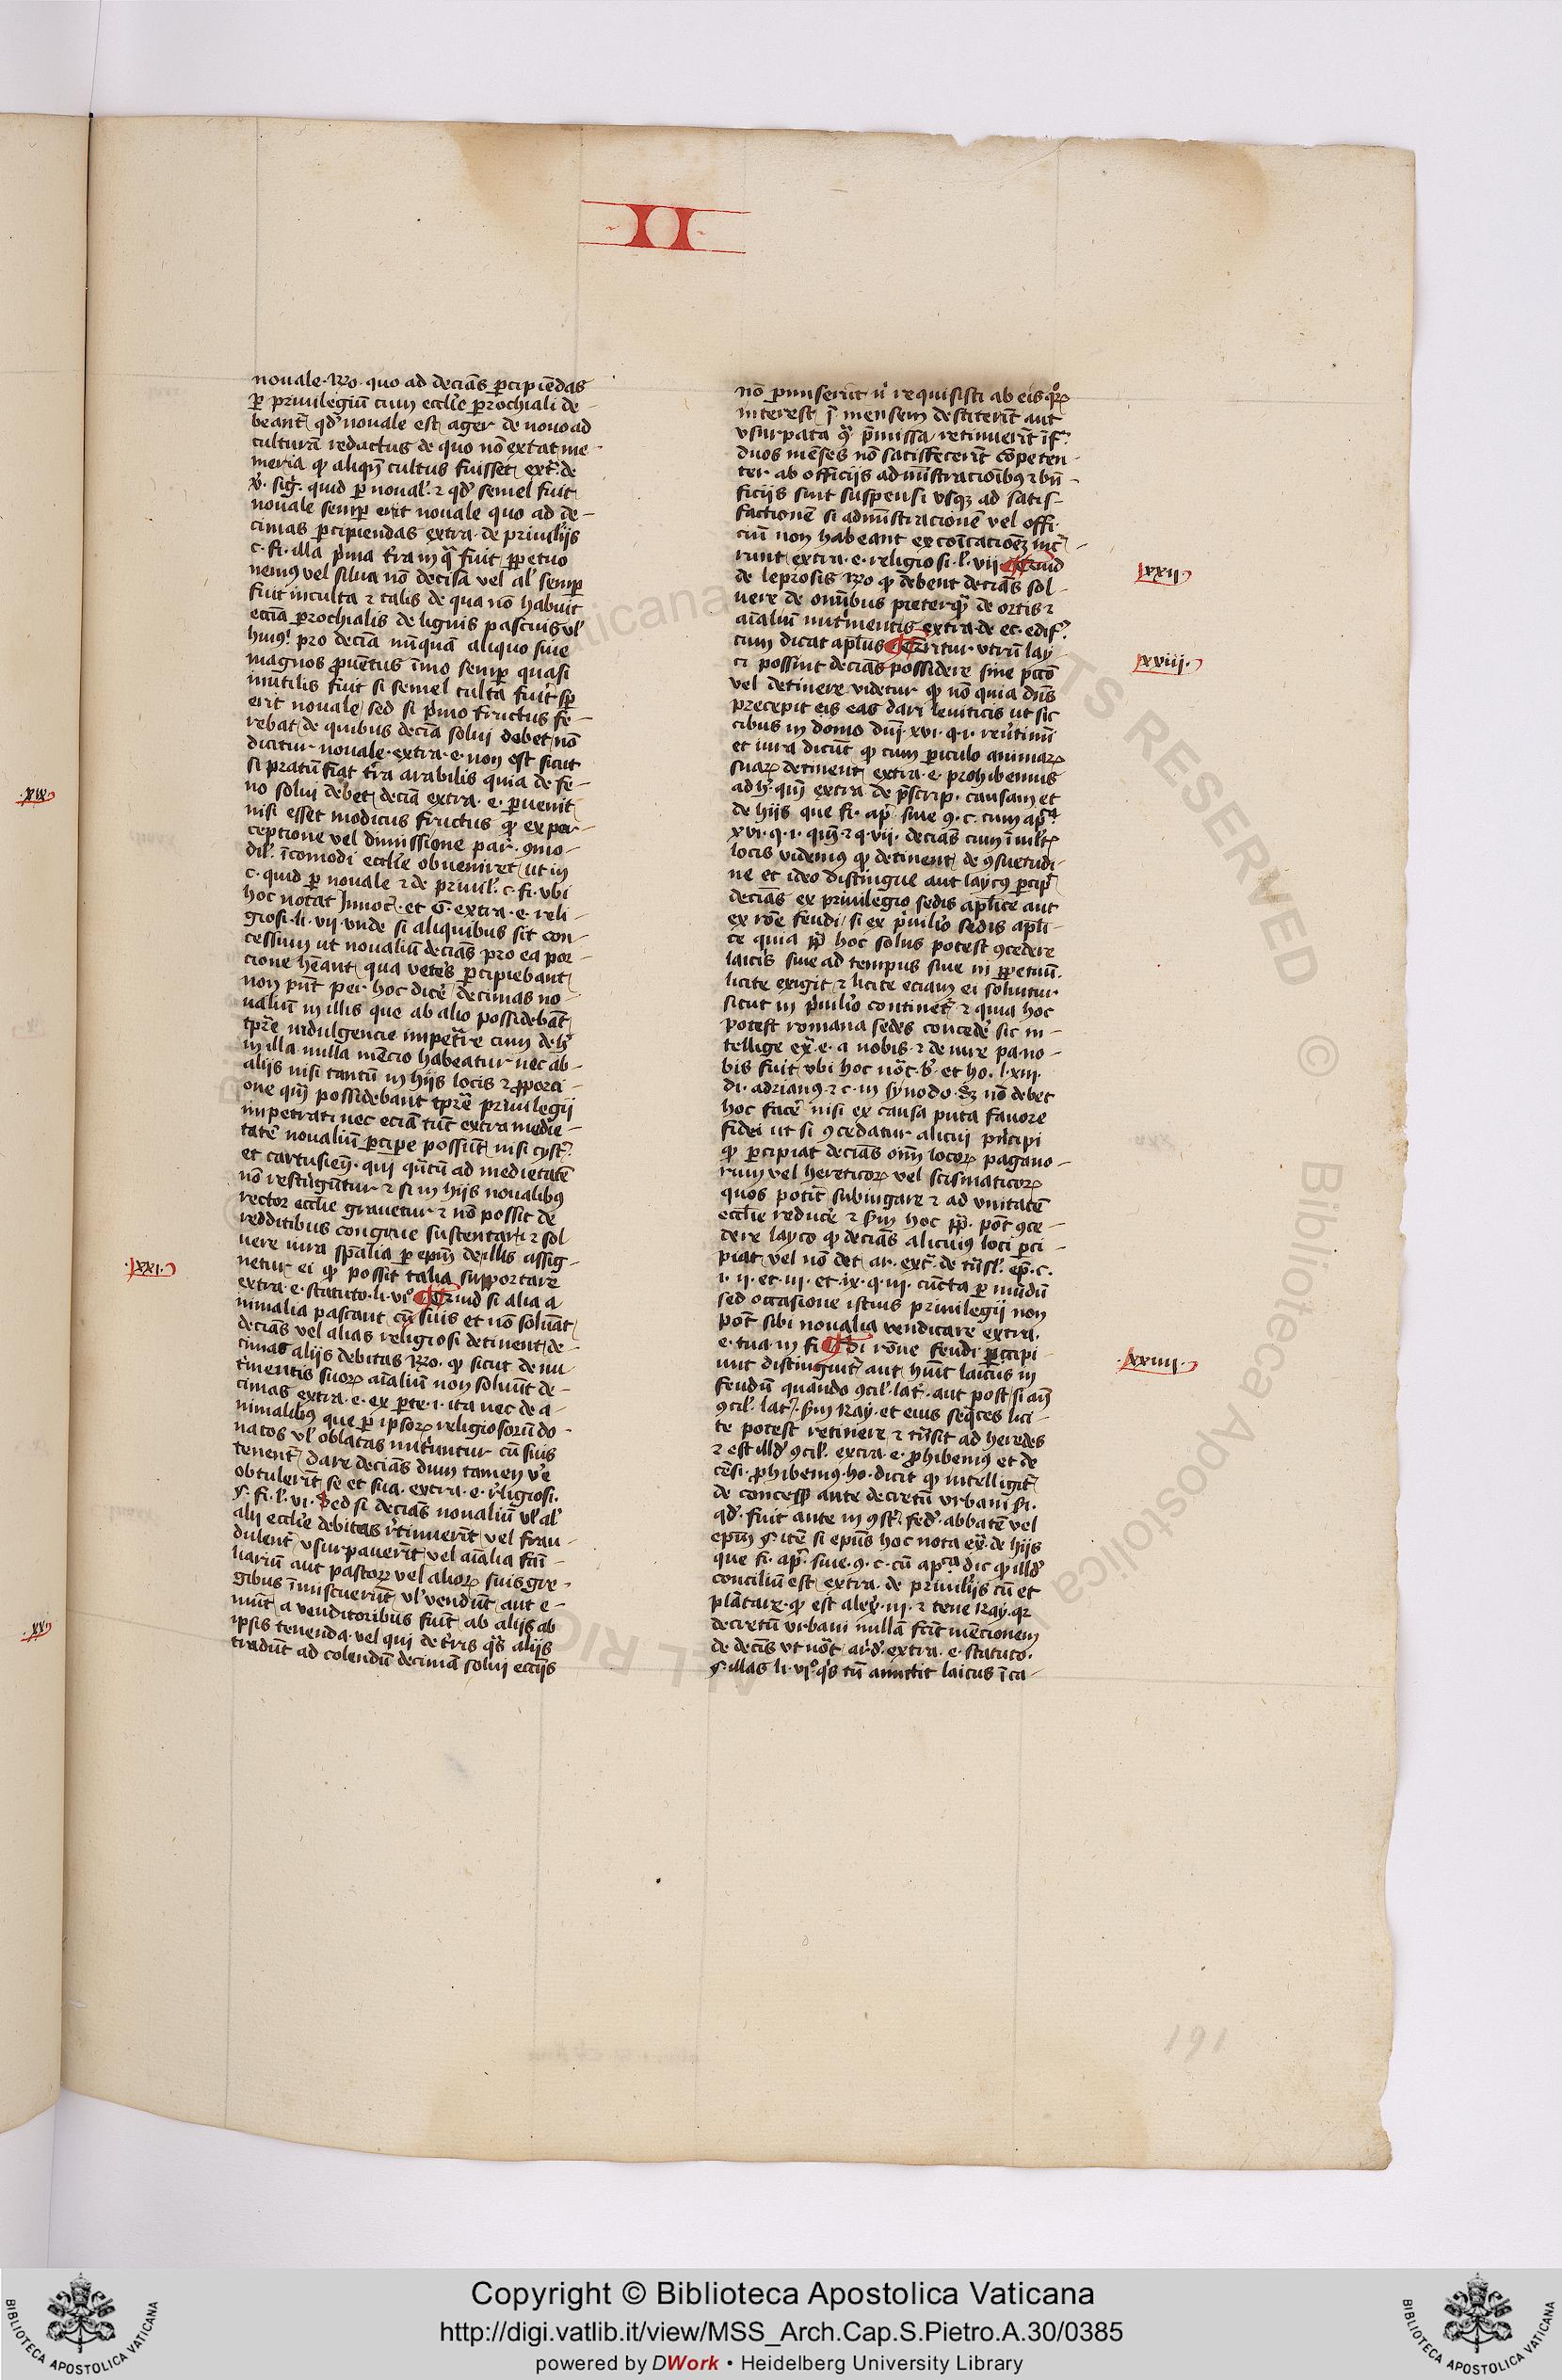 II
nouale. Ro. quo ad deciãs ꝑcipiẽdas
ꝑ priuilegiũ cum eccl'ie ꝑrochiali de-
beant qđ nouale est ager de nouo ad
culturã redactus de quo nõ extat me-
meria ꝙ aliqñ cultus fuisset ext. de
v. sig. quid ꝑ noual'. ⁊ qđ semel fuit
nouale semꝑ erit nouale quo ad de-
cimas ꝑcipiendas extra. de priuil'ijs
c. fi. illa p'ma t'ra in qͣ fuit ꝑpetuo
nemꝰ vel silua nõ decisa vel al' semꝑ
fuit inculta ⁊ talis de qua nõ habuit
ecc'ia ꝑrochialis de lignis pascuis ul'
huiꝰ. pro decia nũquã aliquo siue
magnos ꝓuẽtus ĩmo semꝑ quasi
inutilis fuit si semel culta fuit sꝑ
erit nouale sed si p'mo fructus fe-
rebat de quibus decia solui debet nõ
dicitur nouale. extra. e. non est sicut
si pratũ fiat t'ra arabilis quia de fe-
no solui debet decia extra. e. ꝑuenit
nisi esset modicus fructus ꝙ ex per-
ceptione vel dimissione par. ꝯmo-
di l'. ĩcomodi eccl'ie obueniret ut in
c. quid ꝑ nouale ⁊ de priuil'. c. fi. vbi
hoc notat Innoc. et G. extra. e. reli-
giosi. li. vij. vnde si aliquibus sit con-
cessum ut noualiũ deciãs pro ea por-
cione hẽant qua vetẽs ꝑcipiebant
non pñt per hoc dicẽ decimas no-
ualiũ in illis que ab alio possidebãt
tꝑre indulgencie impet're cum de h'
in illa nulla mẽcio habeatur nec ab
alijs nisi tantũ in hijs locis ⁊ ꝓporci-
one qñ possidebant tꝑre priuilegij
impetrati nec eciã tũc extra medie-
tatẽ noualiũ ꝑcipe possũt nisi cyst'.
et cartusieñ. qui q̃tũ ad medietatẽ
nõ restingũtur ⁊ si in hijs noualibꝰ
rector eccl'ie grauetur ⁊ nõ possit de
redditibus congrue sustentari ⁊ sol
uere iura sp̃alia ꝑ epm̃ de illis assig-
netur ei ꝙ possit talia supportare
extra. e. statuto. li. vi° Quid si alia a
nimalia pascant cũ suis et nõ soluãt
deciãs vel alias religiosi detinent de-
cimas alijs debitas Ro. ꝙ sicut de nu
t'mentis suoꝝ aĩaliũ non soluũt de-
cimas extra. e. ex ꝑte. i. ita nec de a-
nimalibꝰ que ꝑ ipsoꝝ religiosorũ do-
natos ul' oblatas nut'untur cũ suis
tenent dare deciãs dum tamen v'e
obtulerĩt se et sua. extra. e. r'ligiosi.
§. fi. l'. vi. Sed si deciãs noualiũ ul' al'
alij eccl'ie debitas r'tinuerĩt vel frau-
dulent vsurpauerĩt vel aĩalia fãi-
liariũ aut pastoꝝ vel alioꝝ suis gre-
gibus ĩmiscuerũt ul' vendũt aut e-
mũt a venditoribus fuĩt ab alijs ab
ipsis tenenda. vel qui de t'ris q̃s alijs
tradũt ad colendũ decimã solui ecc'ijs
.xxi.
nõ ꝑmiserĩt ũ requisiti ab eis qͦꝝ
interest ĩ mensem destiterĩt aut
vsurpata q̃ p̃missa retinuerĩt ĩf.
duos mẽses nõ satisfecerĩt cõpeten-
ter ab officijs admĩstracioĩbꝰ ⁊ bñ-
ficijs sint suspensi vsqꝫ ad satis-
factionẽ si admĩstracionẽ vel offi-
ciũ non habeant excõicacioẽꝫ inc-
runt extra. e. religiosi. l'. vij Quid
de leprosis Ro ꝙ debent deciãs sol-
uere de om̃ibus preterq̃ de ortis ⁊
aĩaliũ nut'mentis extra. de ec. edif.
cum dicat apl'us Queritur vtrũ lay
ci possint deciãs possidere sine p̃ctõ
vel detinere videtur ꝙ nõ quia dñs
precepit eis eas dari leuiticis ut sic
cibus in domo dñi. xvi. q. i. reu'timĩ
et iura dicũt ꝙ cum ꝑiculo animaꝝ
suaꝝ detinent extra. e. prohibemus
ad h'. qm̃ extra de p̃scrip. causam et
de hijs que fi. ap̃. siue ꝯ. c. cum apͣ.
xvi. q. i. qm̃ ⁊ q. vij. deciãs cum ĩ mlt'
locis videmꝰ ꝙ detinent de ꝯsuetudi-
ne et ideo distingue aut laycꝰ ꝑcip
deciãs ex priuilegio sedis apl'ice aut
ex rõe feudi si ex p'uil'io sedis apl'i-
ce quia ꝓp̃ hoc solus potest ꝯcedere
laicis siue ad tempus siue in ꝑpetuũ.
licite exigit ⁊ licite eciam ei soluitur
sicut in p'uil'io continet ⁊ quia hoc
potest romana sedes concedẽ sic in-
tellige ex̃. e. a nobis. ⁊ de iure pa. no-
bis fuit vbi hoc nõt. b'. et ho. l. xiii.
di. adrianꝰ. ⁊ c. in synodo. sꝫ nõ debet
hoc facẽ nisi ex causa puta fauore
fidei ut si ꝯcedatur alicui p'ncipi
ꝙ ꝑcipiat deciãs om̃i locoꝝ pagano-
rum vel hereticoꝝ vel scismaticoꝝ
quos potĩt subiugare ⁊ ad vnitatẽ
eccl'ie reducẽ ⁊ s'm hoc pp̃. põt ꝯce-
dere layco ꝙ deciãs alicuius loci ꝑci-
piat vel nõ det ar. ext. de t'nsl'. ep̃. c.
i. ii. et. iii. et. ix. q. iii. cũcta ꝑ mũdũ
sed occasione istius priuilegij non
põt sibi noualia vendicare extra.
e. tua. in fi Si rõne feudi ꝑccipi-
unt distinguit aut hñt laicus in
feudũ quando ꝯcil'. lat'. aut post si añ
ꝯcil'. lat'. s'm Ray. et eius seq̃ces lici-
te potest retinere ⁊ t'nsit ad heredes
⁊ est illđ ꝯcil'. extra. e. ꝓhibemus et de
cẽsi. ꝓhibemꝰ. ho. dicit ꝙ intelligit
de concess̃ ante decretũ vrbani ii.
qđ. fuit ante in ꝯst'. fed'. abbatẽ vel
epm̃ §. itẽ si epũs hoc nota ex̃. de hijs
que fi. ap̃. siue. ꝯ. c. cũ apͣ dic ꝙ illđ
conciliũ est extra. de priuil'ijs cũ et
plãtare. ꝙ est alex̃. iii. ⁊ tene Ray. qꝛ
decretũ vrbani nullã fac̃it mẽcionem
de decĩs ut nõt ard'. extra. e. statuto.
§. illas li. vi° q̃s tñ amittit laicus ĩ ca-
xxii
xxiii.
.xxiiii.
.xix
.xx
191
Copyright © Biblioteca Apostolica Vaticana
http://digi.vatlib.it/view/MSS_Arch.Cap.S.Pietro.A.30/0385
powered by DWork • Heidelberg University Library
BIBLIOTECA APOSTOLICA VATICANA
BIBLIOTECA APOSTOLICA VATICANA